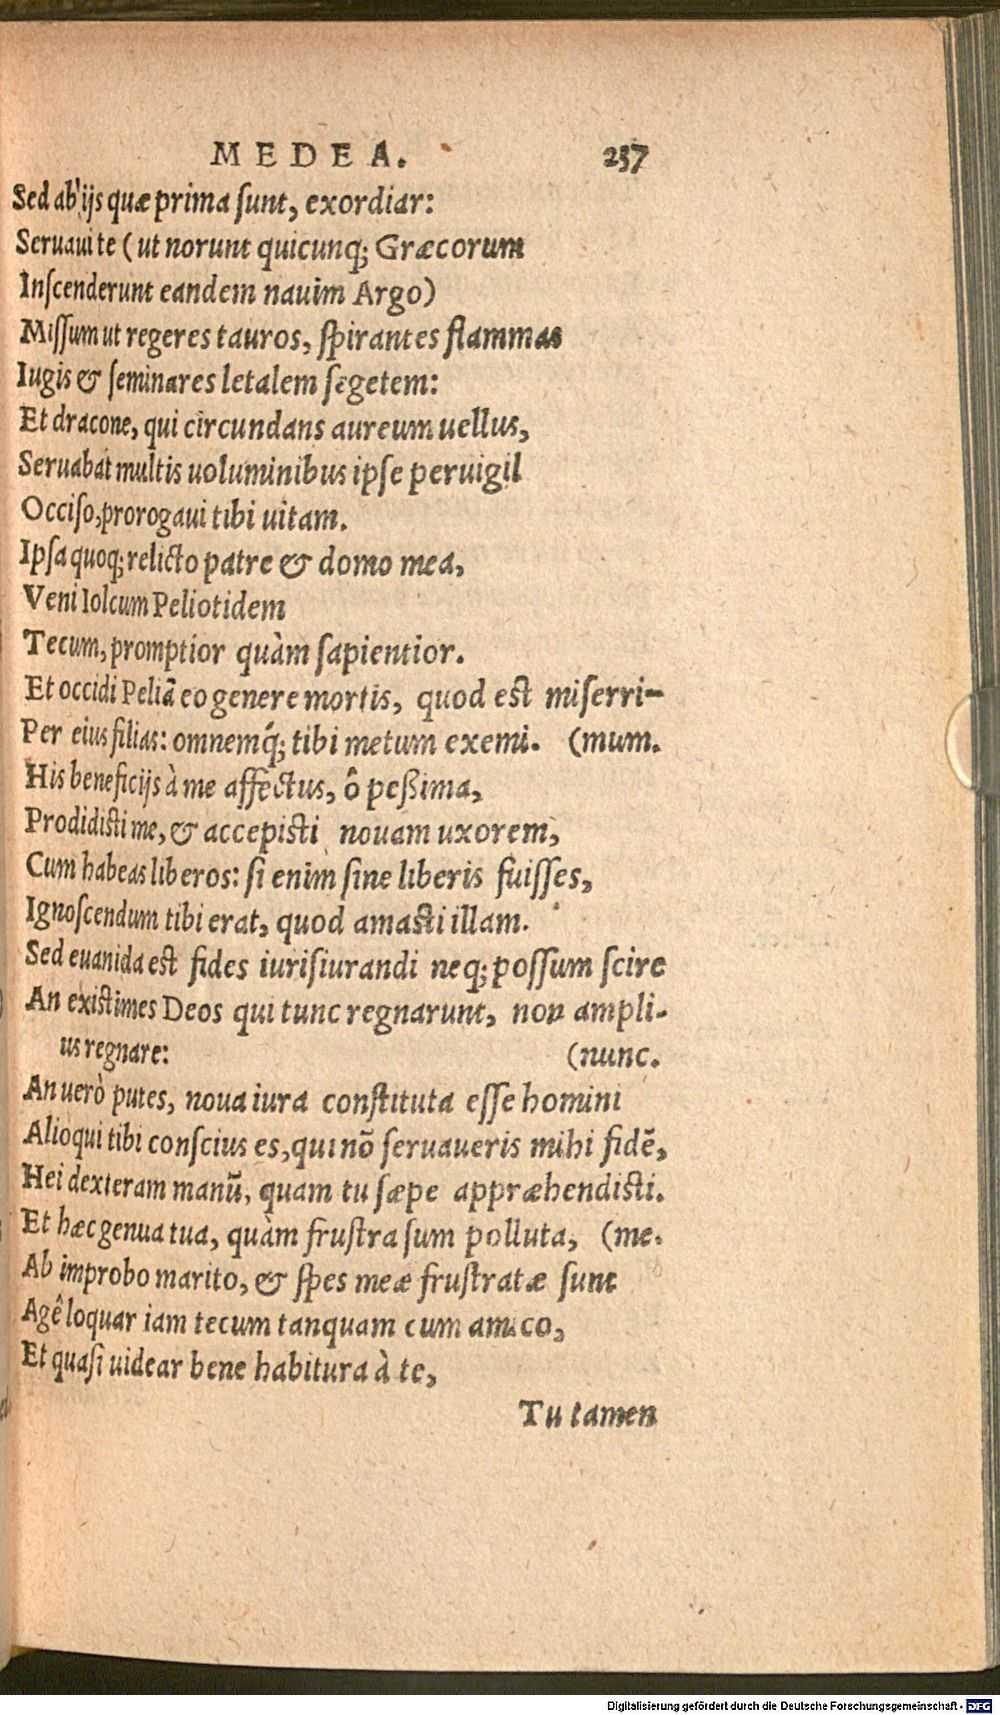 MEDEA. 237
Sed ab ijs quæ prima ſunt, exordiar:
Seruaui te (ut norunt quicunq; Græcorum
Inſcenderunt eandem nauim Argo)
Miſſum ut regeres tauros, ſpirantes flammas
Iugis & ſeminares letalem ſegetem:
Et dracone, qui circundans aureum uellus,
Seruabat multis uoluminibus ipſe peruigil
Occiſo, prorogaui tibi uitam.
Ipſa quoq; relicto patre & domo mea,
Veni Iolcum Peliotidem
Tecum, promptior quàm ſapientior.
Et occidi Peliā eo genere mortis, quod est miſerri-
Per eius filias: omnemq́; tibi metum exemi. (mum.
His beneficijs à me affectus, ô peßima,
Prodidisti me, & accepisti nouam uxorem,
Cum habeas liberos: ſi enim ſine liberis fuiſſes,
Ignoſcendum tibi erat, quod amasti illam.
Sed euanida est fides iurisiurandi neq; poſſum ſcire
An existimes Deos qui tunc regnarunt, non ampli-
us regnare: (nunc.
An uerò putes, noua iura constituta eſſe homini
Alioqui tibi conſcius es, qui nō ſeruaueris mihi fidē,
Hei dexteram manū, quam tu ſæpe appræhendisti.
Et hæc genua tua, quàm frustra ſum polluta, (me.
Ab improbo marito, & ſpes meæ frustratæ ſunt
Agê loquar iam tecum tanquam cum amico,
Et quaſi uidear bene habitura à te,
Tu tamen
Digitalisierung gefördert durch die Deutsche Forschungsgemeinschaft - DFG